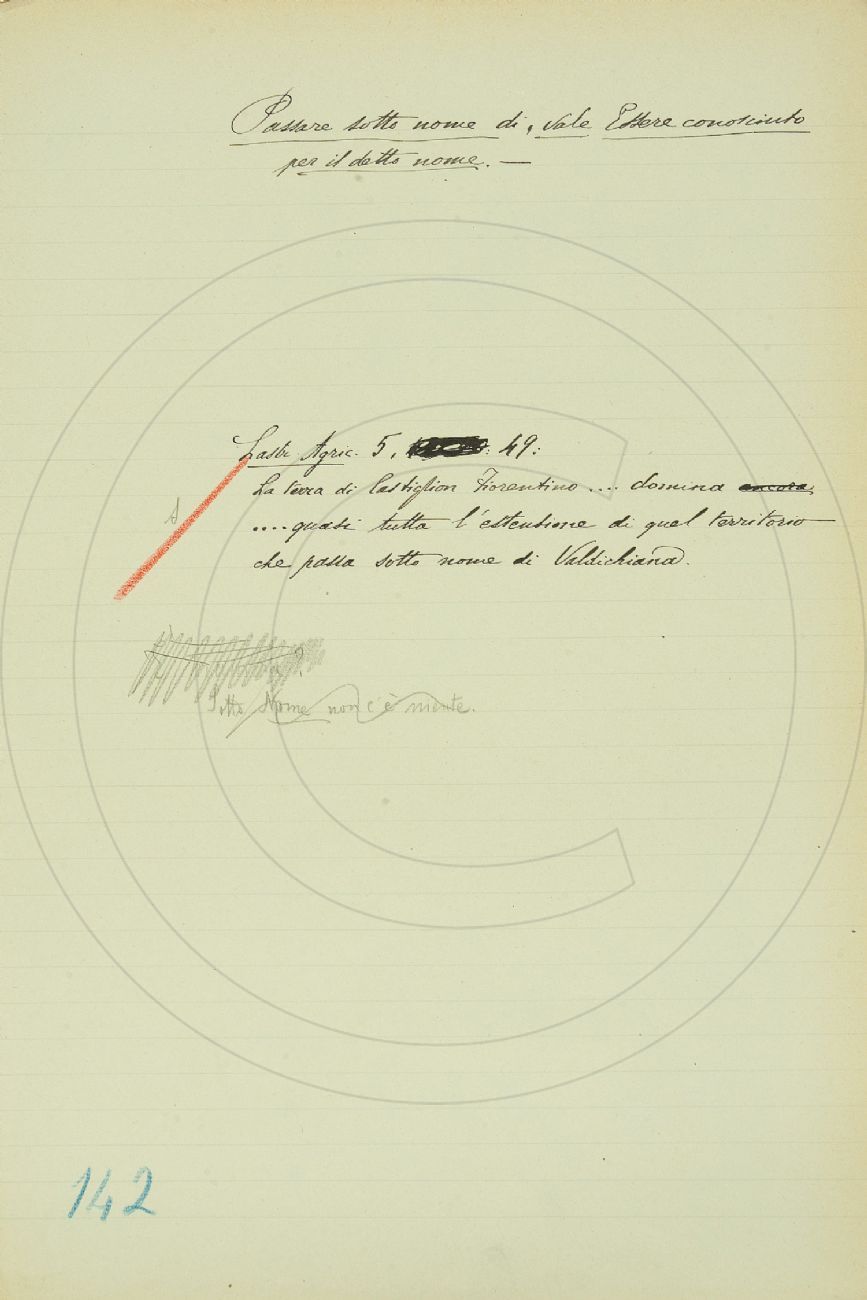 Passare sotto nome di, vale Essere conosciuto
per il detto nome. —
Lastri Agric. 5, 49:
La terra di Castiglion Fiorentino .... domina ancora,
.... quasi tutta l'estensione di quel territorio
che passa sotto nome di Valdichiana.
Sotto Nome non c'è niente.
142